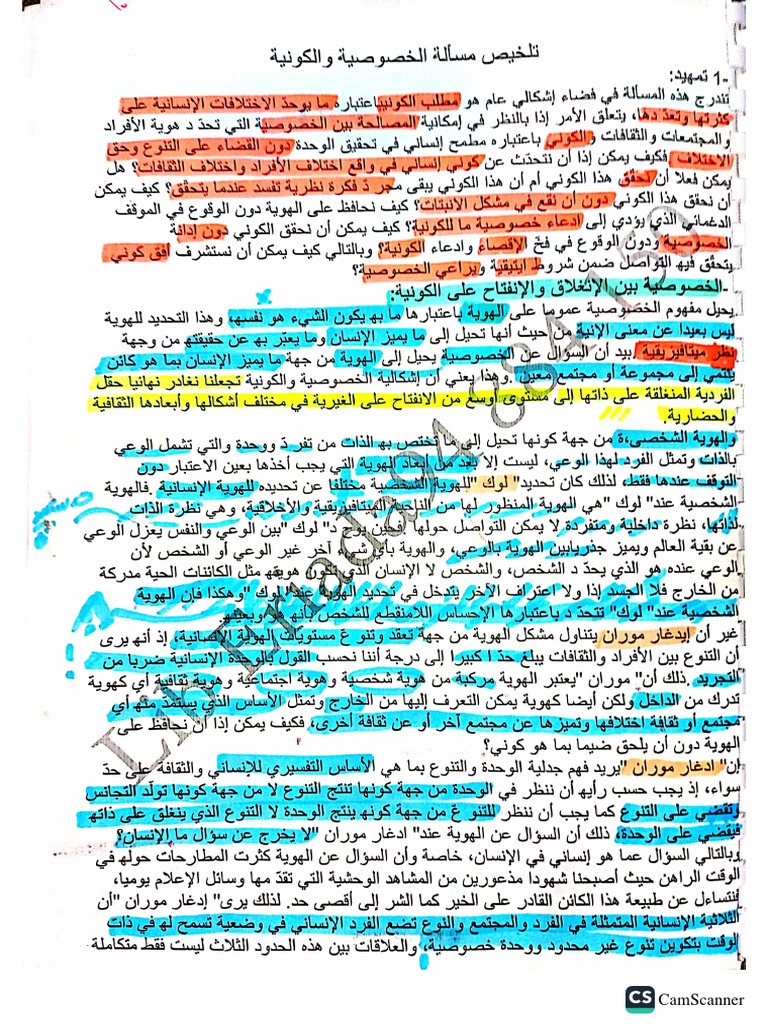 تلخيص مسألة الخصوصية والكونية
1- تمهيد:
تندرج هذه المسألة في فضاء إشكالي عام هو مطلب الكونيباعتباره ما يوحد الاختلافات الإنسانية على
كثرتها وتعدّدها، يتعلق الأمر إذا بالنظر في إمكانية المصالحة بين الخصوصية التي تحدّد هوية الأفراد
والمجتمعات والثقافات والكوني باعتباره مطمح إنساني في تحقيق الوحدة دون القضاء على التنوع وحق
الاختلاف فكيف يمكن إذا أن نتحدّث عن كوني إنساني في واقع اختلاف الأفراد واختلاف الثقافات؟ هل
يمكن فعلا أن نحقق هذا الكوني أم أن هذا الكوني يبقى مجرّد فكرة نظرية تفسد عندما يتحقّق؟ كيف يمكن
أن نحقق هذا الكوني دون أن نقع في مشكل الانبتات؟ كيف نحافظ على الهوية دون الوقوع في الموقف
الدغمائي الذي يؤدي إلى ادعاء خصوصية ما للكونية؟ كيف يمكن أن نحقق الكوني دون إدانة
الخصوصية ودون الوقوع في فخّ الإقصاء وادعاء الكونية؟ وبالتالي كيف يمكن أن نستشرف أفق كوني
يتحقّق فيه التواصل ضمن شروط ايتيقية ويراعي الخصوصية؟
-الخصوصية بين الإنغلاق والإنفتاح على الكونية:
يحيل مفهوم الخصوصية عموما على الهوية باعتبارها ما به يكون الشيء هو نفسه، وهذا التحديد للهوية
ليس بعيدا عن معنى الإنية من حيث أنها تحيل إلى ما يميز الإنسان وما يعبّر به عن حقيقته من وجهة
نظر ميتافيزيقية بيد أن السؤال عن الخصوصية يحيل إلى الهوية من جهة ما يميز الإنسان بما هو كائن
ينتمي إلى مجموعة أو مجتمع معين .وهذا يعني أن إشكالية الخصوصية والكونية تجعلنا نغادر نهائيا حقل
الفردية المنغلقة على ذاتها إلى مستوى أوسع من الانفتاح على الغيرية في مختلف أشكالها وأبعادها الثقافية
والحضارية.
والهوية الشخصى،ة من جهة كونها تحيل إلى ما تختص به الذات من تفرّد ووحدة والتي تشمل الوعي
بالذات وتمثل الفرد لهذا الوعي، ليست إلا بعد من أبعاد الهوية التي يجب أخذها بعين الاعتبار دون
التوقف عندها فقط، لذلك كان تحديد" لوك "للهوية الشخصية مختلفا عن تحديده للهوية الإنسانية .فالهوية
الشخصية عند" لوك "هي الهوية المنظور لها من الناحية الميتافيزيقية والأخلاقية، وهي نظرة الذات
لذاتها، نظرة داخلية ومتفردة لا يمكن التواصل حولها .فحين يوحّد" لوك "بين الوعي والنفس يعزل الوعي
عن بقية العالم ويميز جذريابين الهوية بالوعي، والهوية بأي شيء آخر غير الوعي أو الشخص لأن
الوعي عنده هو الذي يحدّد الشخص، والشخص لا الإنسان الذي تكون هويته مثل الكائنات الحية مدركة
من الخارج فلا الجسد إذا ولا اعتراف الآخر يتدخل في تحديد الهوية عند" لوك "وهكذا فإن الهوية
الشخصية عند" لوك" تتحدّد باعتبارها الإحساس اللامنقطع للشخص بأنه هو وبعينه
غير أن إيدغار موران يتناول مشكل الهوية من جهة تعقد وتنوعّ مستويات الهوية الإنسانية، إذ أنه يرى
أن التنوع بين الأفراد والثقافات يبلغ حدّا كبيرا إلى درجة أننا نحسب القول بالوحدة الإنسانية ضربا من
التجريد .ذلك أن" موران "يعتبر الهوية مركبة من هوية شخصية وهوية اجتماعية وهوية ثقافية أي كهوية
تدرك من الداخل ولكن أيضا كهوية يمكن التعرف إليها من الخارج وتمثل الأساس الذي يستمدّ منه أي
مجتمع أو ثقافة اختلافها وتميزها عن مجتمع آخر أو عن ثقافة أخرى، فكيف يمكن إذا أن نحافظ على
الهوية دون أن يلحق ضيما بما هو كوني؟
إن" ادغار موران "يريد فهم جدلية الوحدة والتنوع بما هي الأساس التفسيري للإنساني والثقافة على حدّ
سواء، إذ يجب حسب رأيه أن ننظر في الوحدة من جهة كونها تنتج التنوع لا من جهة كونها تولّد التجانس
وتقضي على التنوع كما يجب أن ننظر للتنوعّ من جهة كونه ينتج الوحدة لا التنوع الذي ينغلق على ذاته
فيقضي على الوحدة، ذلك أن السؤال عن الهوية عند" ادغار موران "لا يخرج عن سؤال ما الإنسان؟
وبالتالي السؤال عما هو إنساني في الإنسان، خاصة وأن السؤال عن الهوية كثرت المطارحات حوله في
الوقت الراهن حيث أصبحنا شهودا مذعورين من المشاهد الوحشية التي تقدّمها وسائل الإعلام يوميا،
فنتساءل عن طبيعة هذا الكائن القادر على الخير كما الشر إلى أقصى حد. لذلك يرى" إدغار موران "أن
الثلاثية الإنسانية المتمثلة في الفرد والمجتمع والنوع تضع الفرد الإنساني في وضعية تسمح له في ذات
الوقت بتكوين تنوع غير محدود ووحدة خصوصية، والعلاقات بين هذه الحدود الثلاث ليست فقط متكاملة
CS CamScanner